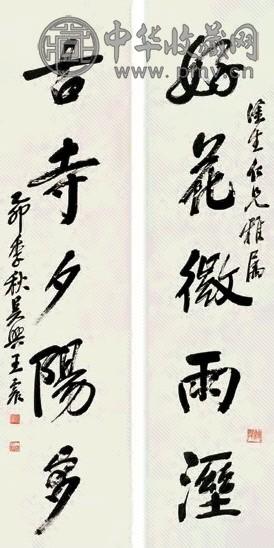 中华收藏网
好花微雨溼
生仁兄雅属
寺夕陽多
卯季秋吳興王震